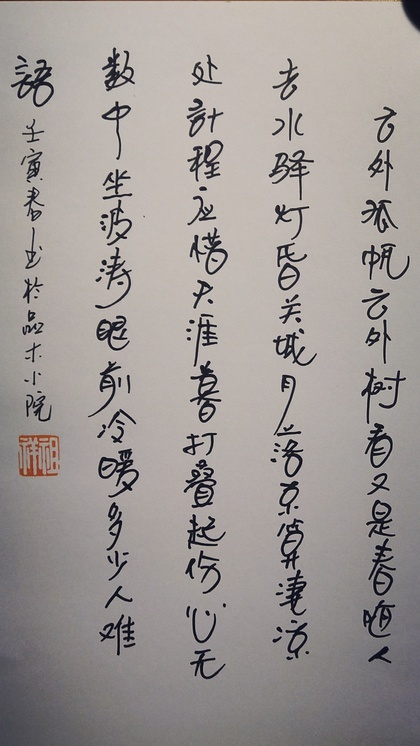 云外孤帆云外树看又是春随人
去水驿灯昏关城月落不算淒凉
处計程应惜天涯暮打叠起伤心无
数中坐波涛眼前冷暖多少人难
語 壬寅春书於品木小院
祖祥